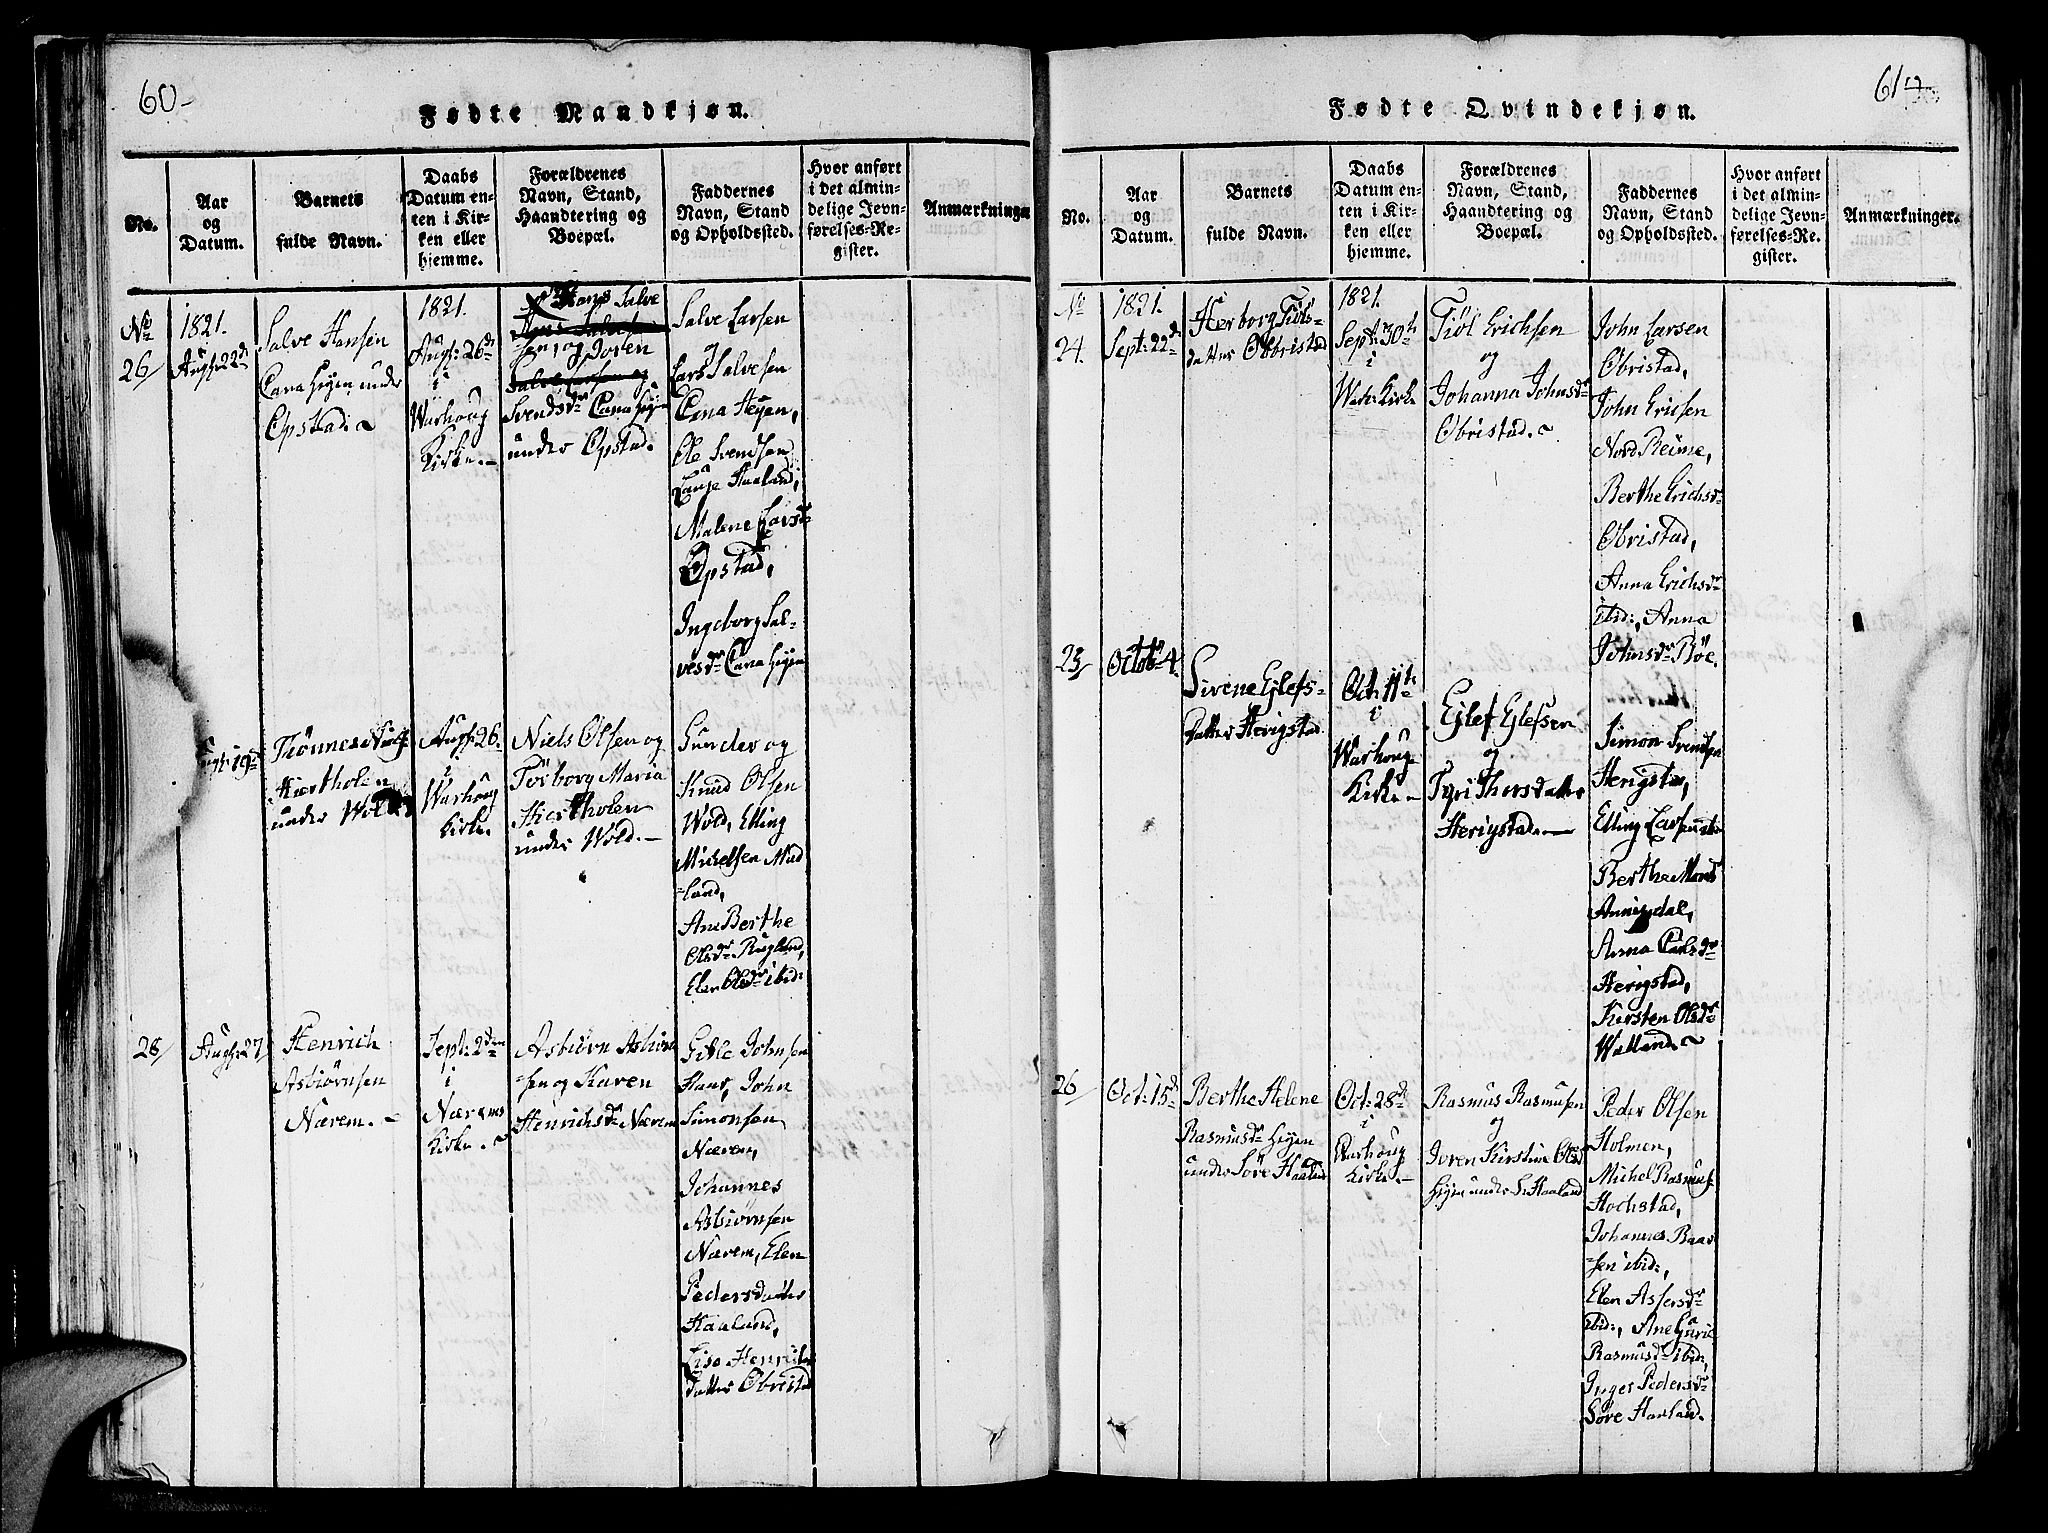 60
Fødte Mandkjøn.
No.
Aar
og
Datum.
Barnets
fulde Navn.
Daabs
Datum en-
ten i Kir-
ken eller
hjemme.
Forældrenes
Navn, Stand,
Haandtering og
Boepæl.
Faddernes
Navn, Stand
og Opholdssted.
Hvor anført
i det almin-
delige Jevn-
førelses-Re-
gister.
Anmærkninger
No
26/
1821.
Aug: 22d
Salve Hansen
Cana Heyen under
Opstad.
1821.
Aug: 26d
i
Warhoug
Kirke.
Hans Salve
sen, og Joren
Salve Larsen og
Svendsdr Cana Heyen
under Opstad.
Salve Larsen
og
Lars Salvesen
Cana Heyen,
Ole Svendsen
Haaland,
Malene Larsdr
Opstad,
Ingeborg Sal-
vesdr Cana Heyen
19d
Tønnes Niels
Hiertholen
under Wold
Aug: 26.
i
Warhoug
Kirke.
Niels Olsen og
Torborg Maria
Hiertholen
under Wold.
Gunder og
Knud Olsen
Wold, Elling
Michelsen Mud
=land,
Ane Berthe
Olsdr Rugland,
Elen Olsdr ibid:
28/
Aug: 27
Henrich
Asbiørnsen
Nærem.
Sept: 2den
i
Nærems
Kirke.
Asbiørn Asbiørn
sen og Karen
Henrichsdr Nærem
Gitle Johnsen
Haar, John
Simonsen
Nærem,
Johannes
Asbiørnsen
Nærem, Elen
Pedersdatter
Haaland,
Lisa Henrichs
datter Obrestad
61
Fødte Qvindekjøn.
No.
Aar
og
Datum.
Barnets
fulde Navn.
Daabs
Datum en-
ten i Kir-
ken eller
hjemme.
Forældrenes
Navn, Stand,
Haandtering og
Boepæl.
Faddernes
Navn, Stand
og Opholdssted.
Hvor anført
i det almin-
delige Jevn-
førelses-Re-
gister.
Anmærkninger.
No
24.
1821.
Sept: 22d
Herborg Tiøls-
datter Obristad
1821.
Sept: 30te
i
Warh: Kirke
Tiøl Erichsen
og
Johanna Johnsdr
Obristad.
John Larsen
Obristad,
John Ericsen
Nord Reime,
Berthe Erichsdr
Obristad,
Anna Erichsdr
ibid:, Anna
Johnsdr Bøe.
25/
Octob: 4.
Sirene Ejlefs-
datter Herigstad
Oct: 11te
i
Warhoug
Kirke
Ejlef Ejlefsen
og
Tyri Thorsdatter
Herigstad.
Simon Svendsen
Herigstad,
Elling Larsen
Berthe Mons
Annisdal,
Anna Carlsdr
Herigstad,
Kirsten Olsdr
Walland.
26
Oct: 15d
Berthe Helene
Rasmusdr Heyen
under Søre Haaland
Oct: 28d
i
Warhoug
Kirke.
Rasmus Rasmusen
og
Joren Kirstine Olsd
Heyen under S. Haaland
Peder Olsen
Holmen,
Michel Rasmus
Hochstad,
Johannes Baar
=sen ibid:,
Elen Assersdr
ibid:, Ane Guril
Rasmusdr ibid:,
Inger Pedersdr
Søre Haaland.